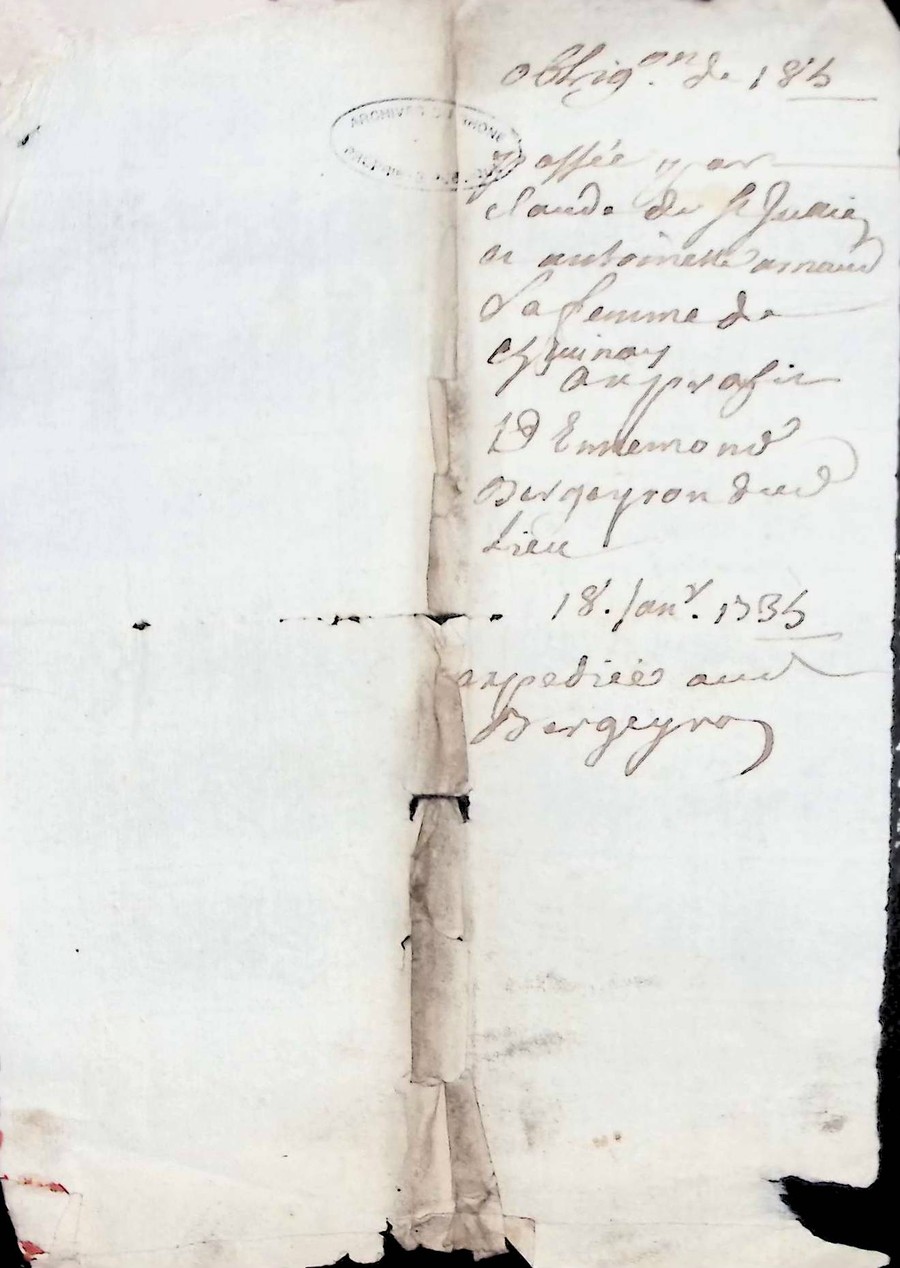 obligon. de 185
ARCHIVES DU RHONE
passée par
claude de St Jullien
et antoinette arnaud
sa femme de
Chuinay
au profit
D Ennemond
Bergeyron dud
Lieu
18. Janr. 1735
expediée aud
Bergeyron